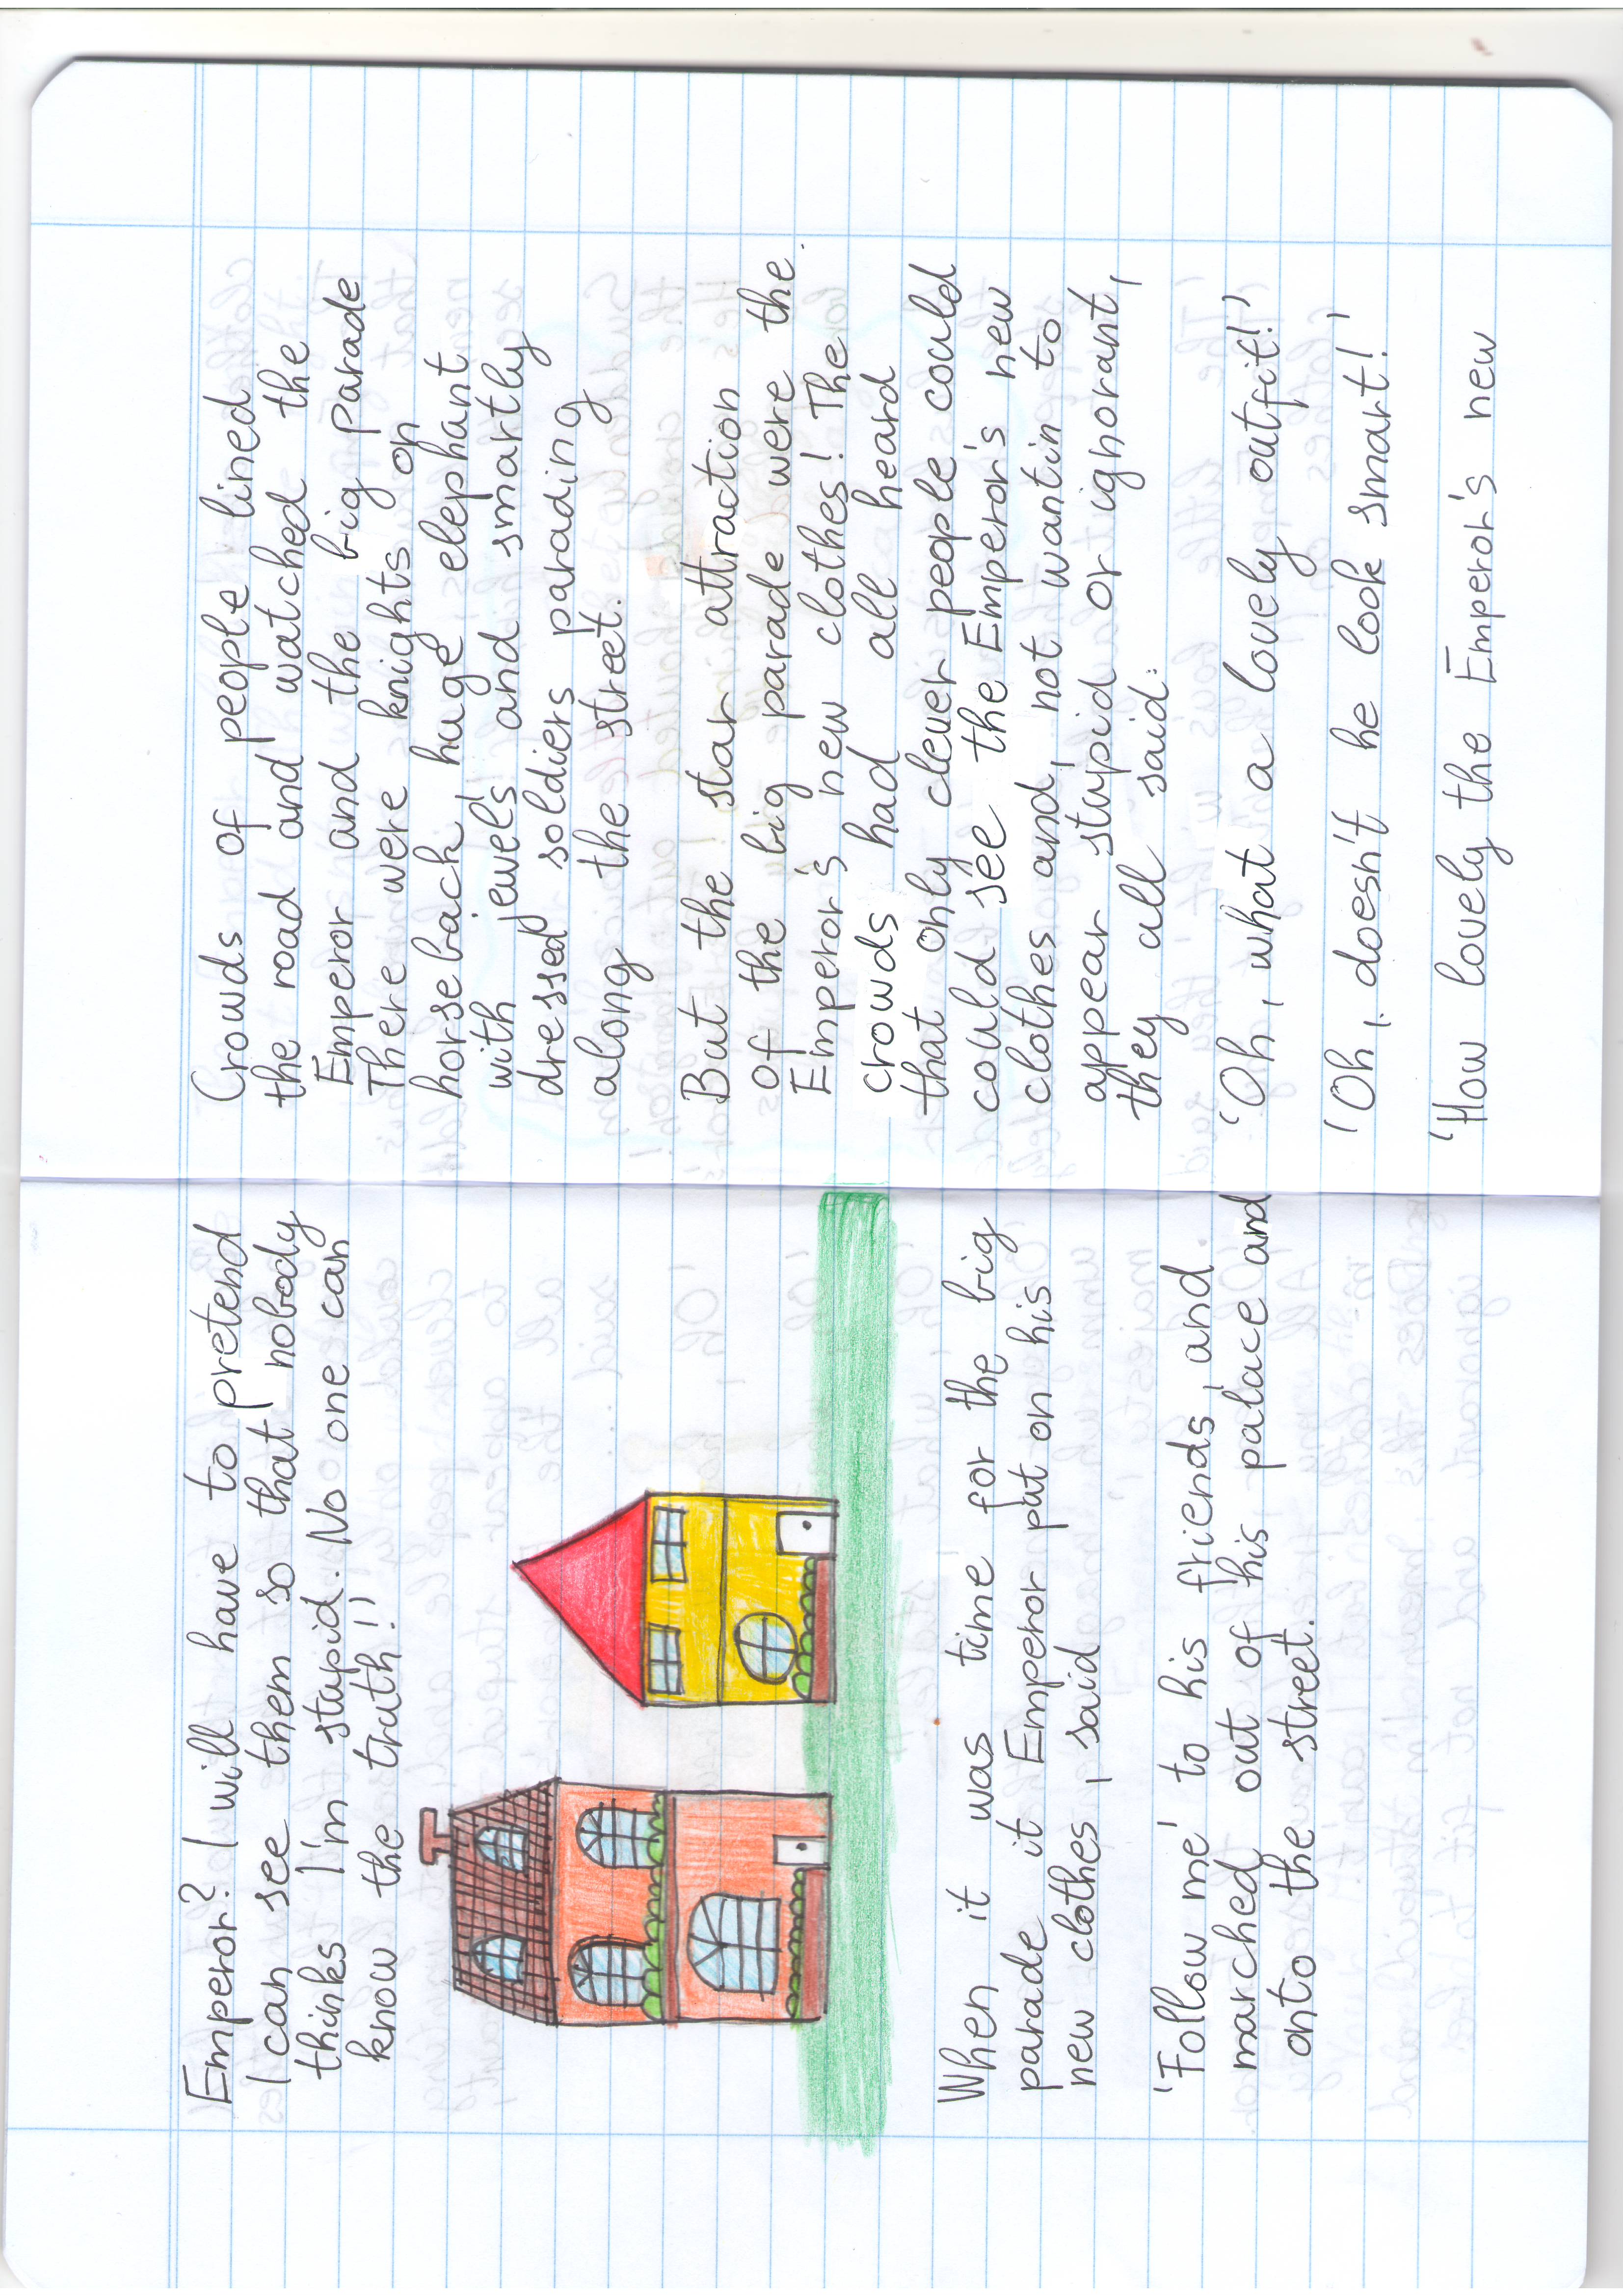 Emperor? I will have to pretend
I can see them so that nobody
thinks I'm stupid. No one can
know the truth!!
When it was time for the big
parade it Emperor put on his
new clothes, said
'Follow me' to his friends, and
marched out of his palace and
onto the street.
Crowds of people lined
the road and watched the
Emperor and the big parade
There were knights on
horseback huge elephant
with jewels and smartly
dressed soldiers parading
along the street.
But the star attraction
of the big parade were the
Emperor's new clothes! The
crowds had all heard
that only clever people could
could see the Emperor's new
clothes and, not wantin to
appear stupid or ignorant,
they all said:
'Oh, what a lovely outfit!'
'Oh, doesn't he look smart!'
'How lovely the Emperor's new